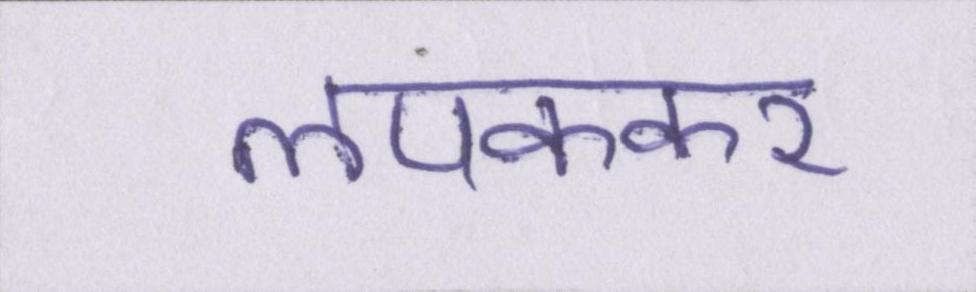 लपककर